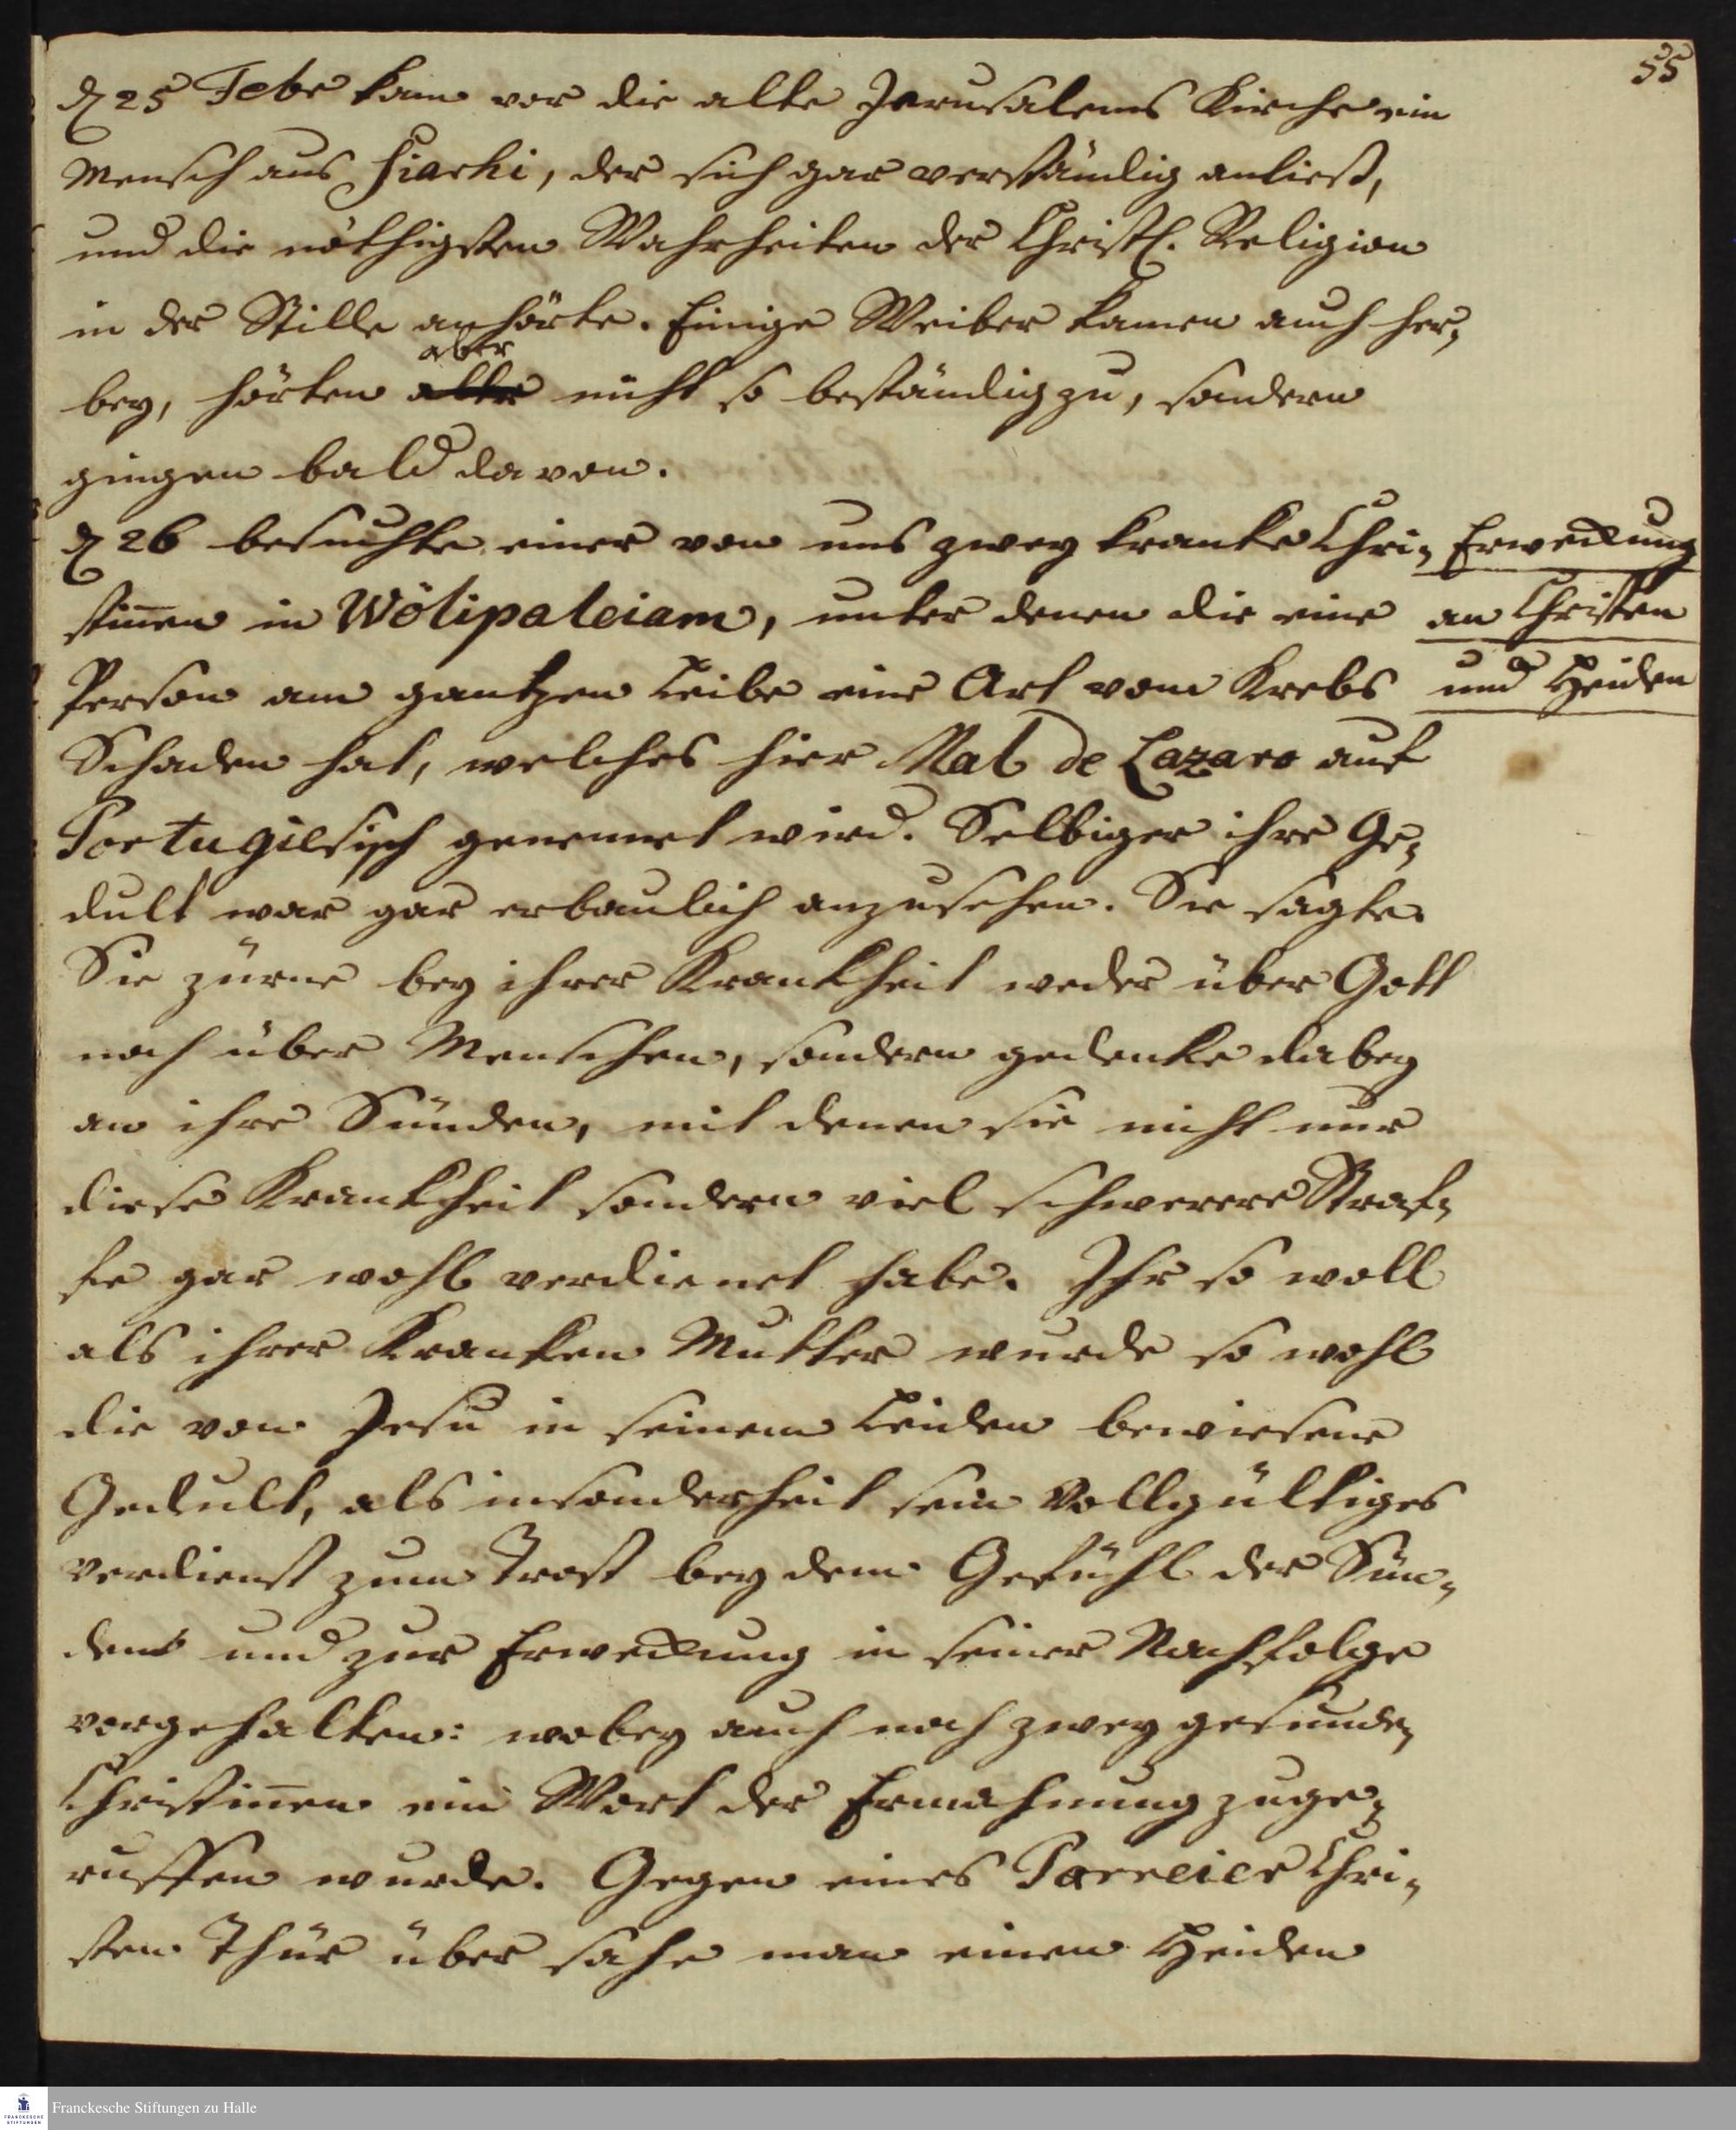 55
d 25 Febr kam vor die alte Jerusalems Kirche ein
Mensch aus Siarhi, der sich gar verständig anließ,
und die nöthigsten Wahrheiten der Christl. Religion
in der Stille anhörte. Einige Weiber kamen auch her=
aber
bey, hörten alle nicht so beständig zu, sondern
gingen bald davon.
d 26 besuchte einer von uns zwey krancke Chri=
stiñen in Wölipaleiam, unter denen die eine
Person am gantzen Leibe eine Art vom Krebs
Schaden hat, welches hier Mal de Lazaro auf
Portugiesisch genennet wird. Selbiger ihre Ge=
dult war gar erbaulich anzusehen. Sie sagte
Sie zürne bey ihrer Kranckheit weder über Gott
noch über Menschen, sondern gedencke dabey
an ihre Sünden, mit denen sie nicht nur
diese Kranckheit sondern viel schwerere Straf=
fe gar wohl verdienet habe. Ihr so woll
als ihrer Krancken Mutter wurde so wohl
die von Jesu in seinem Leiden bewiesene
Gedult, als insonderheit sein Vollgültiges
Verdienst zum Trost bey dem Gefühl der Sün=
den und zur Erweckung in seiner Nachfolge
vorgehalten: wobey auch noch zwey gesunde
Christiñen ein Wort der Ermahnung zuge=
ruffen wurde. Gegen eines Parreier Chri=
sten Thür über sahe man einen Heiden
Erweckung
an Christen
und Heiden
Franckesche Stiftungen zu Halle
FRANCKESCHE
STIFTUNGEN